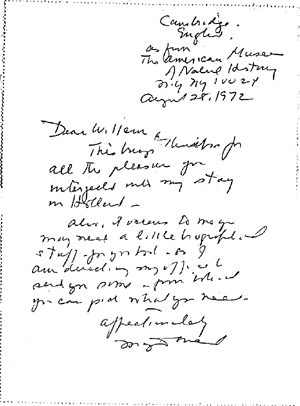 Cambridge.
England.
as from
The American Museum
of Natural History
N.Y. NY 10024
August 28, 1972
Dear William
This brings
all the pleasure you
into my stay
in Holland –
Also, it occurs to me you
may need a little biographical
stuff – for you
am directing my office to
send you some – from which
you can pick what you need –
affectionately